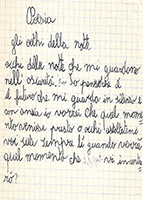 Poesia
gli occhi della notte
occhi della notte che mi guardano
nell'oscurità. Io penso che è
il futuro che mi guarda in silenzio e
con ansia io vorrei che quel mome
nto venisse presto o occhi aspettatemi
voi sempre li quando verrà
quel momento che vi incontre
rò?